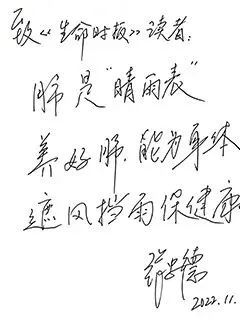 致《生命时报》读者:
肺是"晴雨表"
养好肺,能为身体
遮风挡雨保健康
张忠德
2022.11.